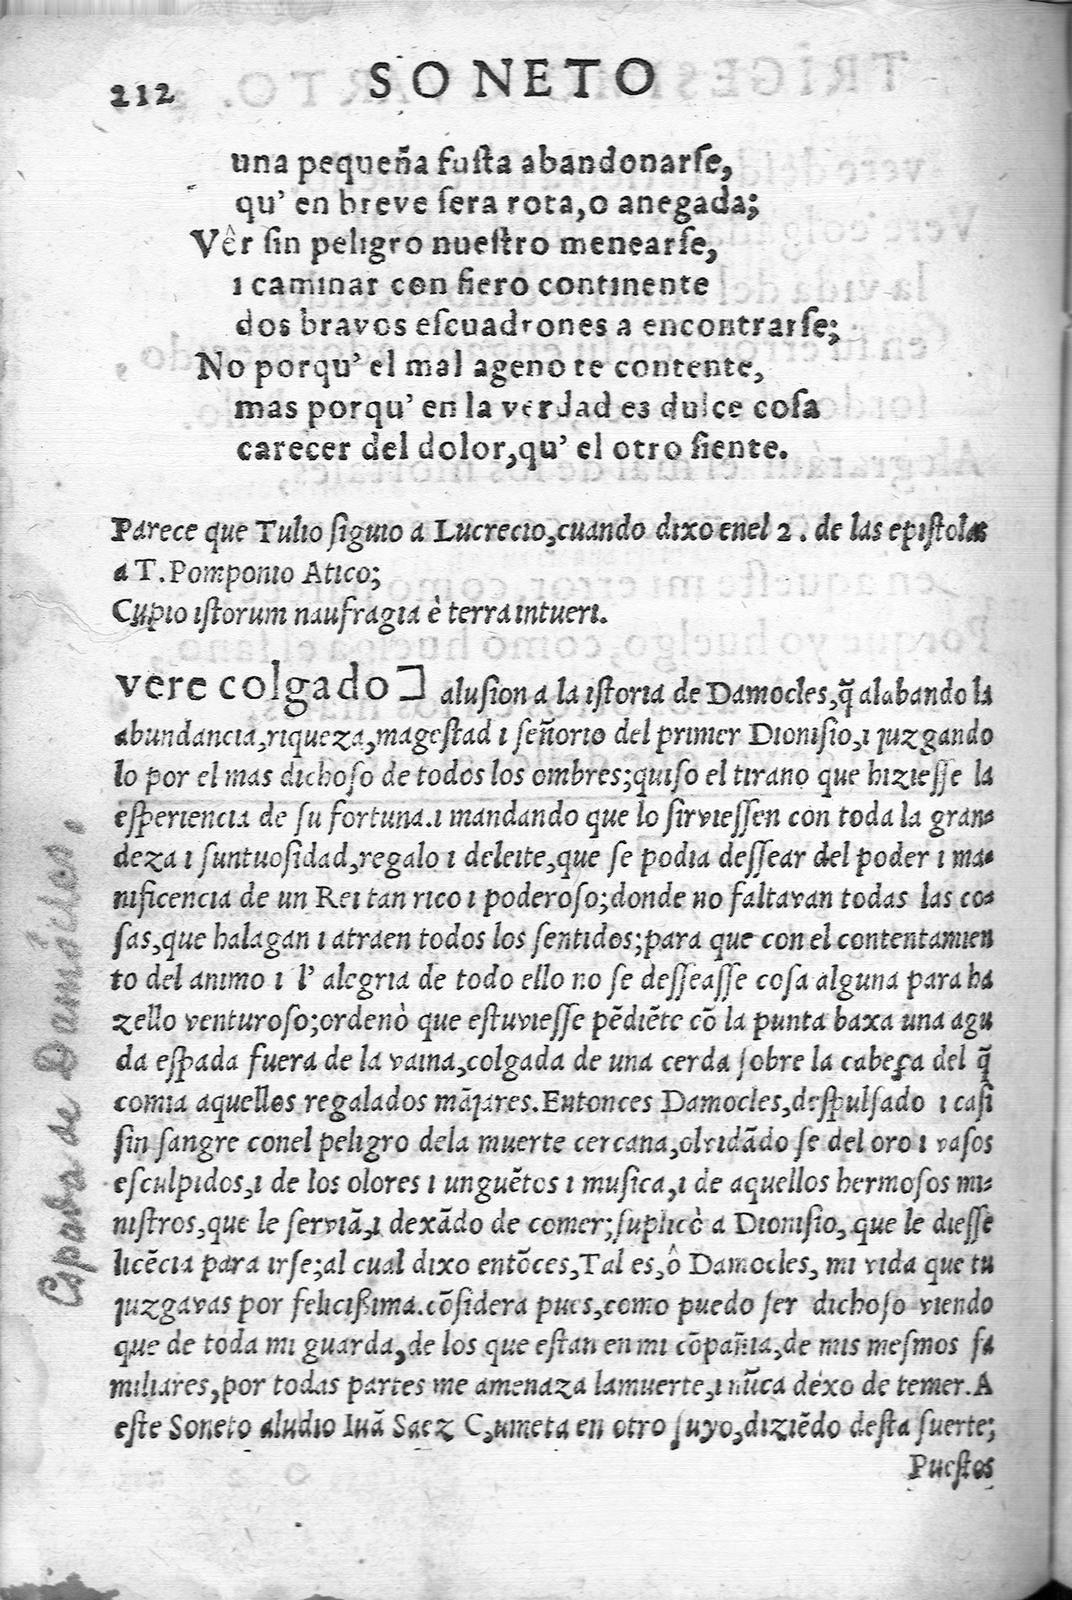 212 SONETO
una pequeña fuſta abandonarſe,
qu' en breve ſera rota, o anegada;
Vêr ſin peligro nueſtro menearſe,
i caminar con fiero continente
dos bravos eſcuadrones a encontrarſe;
No porqu' el mal ageno te contente,
mas porqu' en la verdad es dulce coſa
carecer del dolor, qu' el otro ſiente.
Parece que Tulio ſiguio a Lucrecio, cuando dixo enel 2. de las epiſtolas
a T. Pomponio Atico;
Cupio iſtorum naufragia è terra intueri.
vere colgado] aluſion a la iſtoria de Damocles, q̃ alabando la
abundancia, riqueza, mageſtad i ſeñorio del primer Dioniſio, i juzgando
lo por el mas dichoſo de todos los ombres; quiſo el tirano que hizieſſe la
eſperiencia de ſu fortuna. i mandando que lo ſirvieſſen con toda la gran-
deza i ſuntuoſidad, regalo i deleite, que ſe podia deſſear del poder i ma-
nificencia de un Rei tan rico i poderoſo; donde no faltavan todas las co-
ſas, que halagan i atraen todos los ſentidos; para que con el contentamien
to del animo i l' alegria de todo ello no ſe deſſeaſſe coſa alguna para ha
zello venturoſo; ordenò que eſtuvieſſe pẽdiẽte cõ la punta baxa una agu
da eſpada fuera de la vaina, colgada de una cerda ſobre la cabeça del q̃
comia aquellos regalados mãjares. Entonces Damocles, deſpulſado i caſi
ſin ſangre conel peligro dela muerte cercana, olvidãdo ſe del oro i vaſos
eſculpidos, i de los olores i unguẽtos i muſica, i de aquellos hermoſos mi-
niſtros, que le ſerviã, i dexãdo de comer; ſuplicò a Dioniſio, que le dieſſe
licẽcia para irſe; al cual dixo entõces, Tal es, ô Damocles, mi vida que tu
juzgavas por feliciſſima. cõſidera pues, como puedo ſer dichoſo viendo
que de toda mi guarda, de los que eſtan en mi cõpañia, de mis meſmos fa
miliares, por todas partes me amenaza lamuerte, i nũca dexo de temer. A
eſte Soneto aludio Iuã Saez Çumeta en otro ſuyo, diziẽdo deſta ſuerte;
Pueſtos
Espada de Damócles.